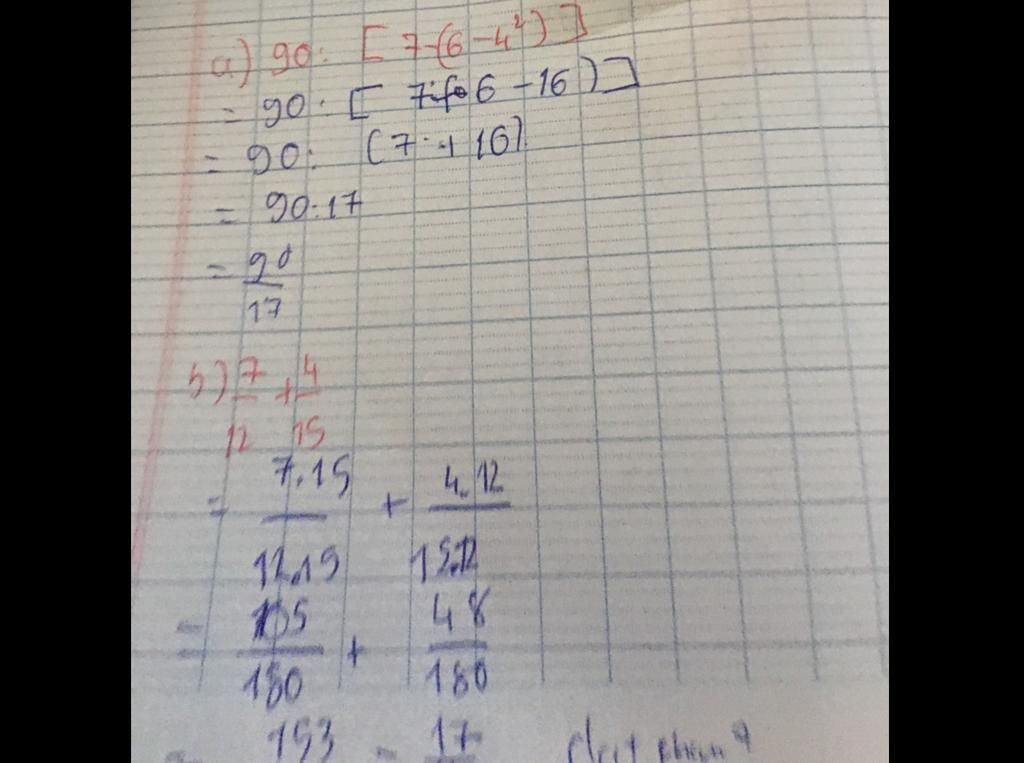 a) 90: [ 7-(6-4²) ]
= 90: [ 7-(6-16)]
= 90: (7+16)
= 90:17
= 90/17
b) 7/12 + 4/15
= 7.15/12.15 + 4.12/15.12
= 105/180 + 48/180
= 153 = 17